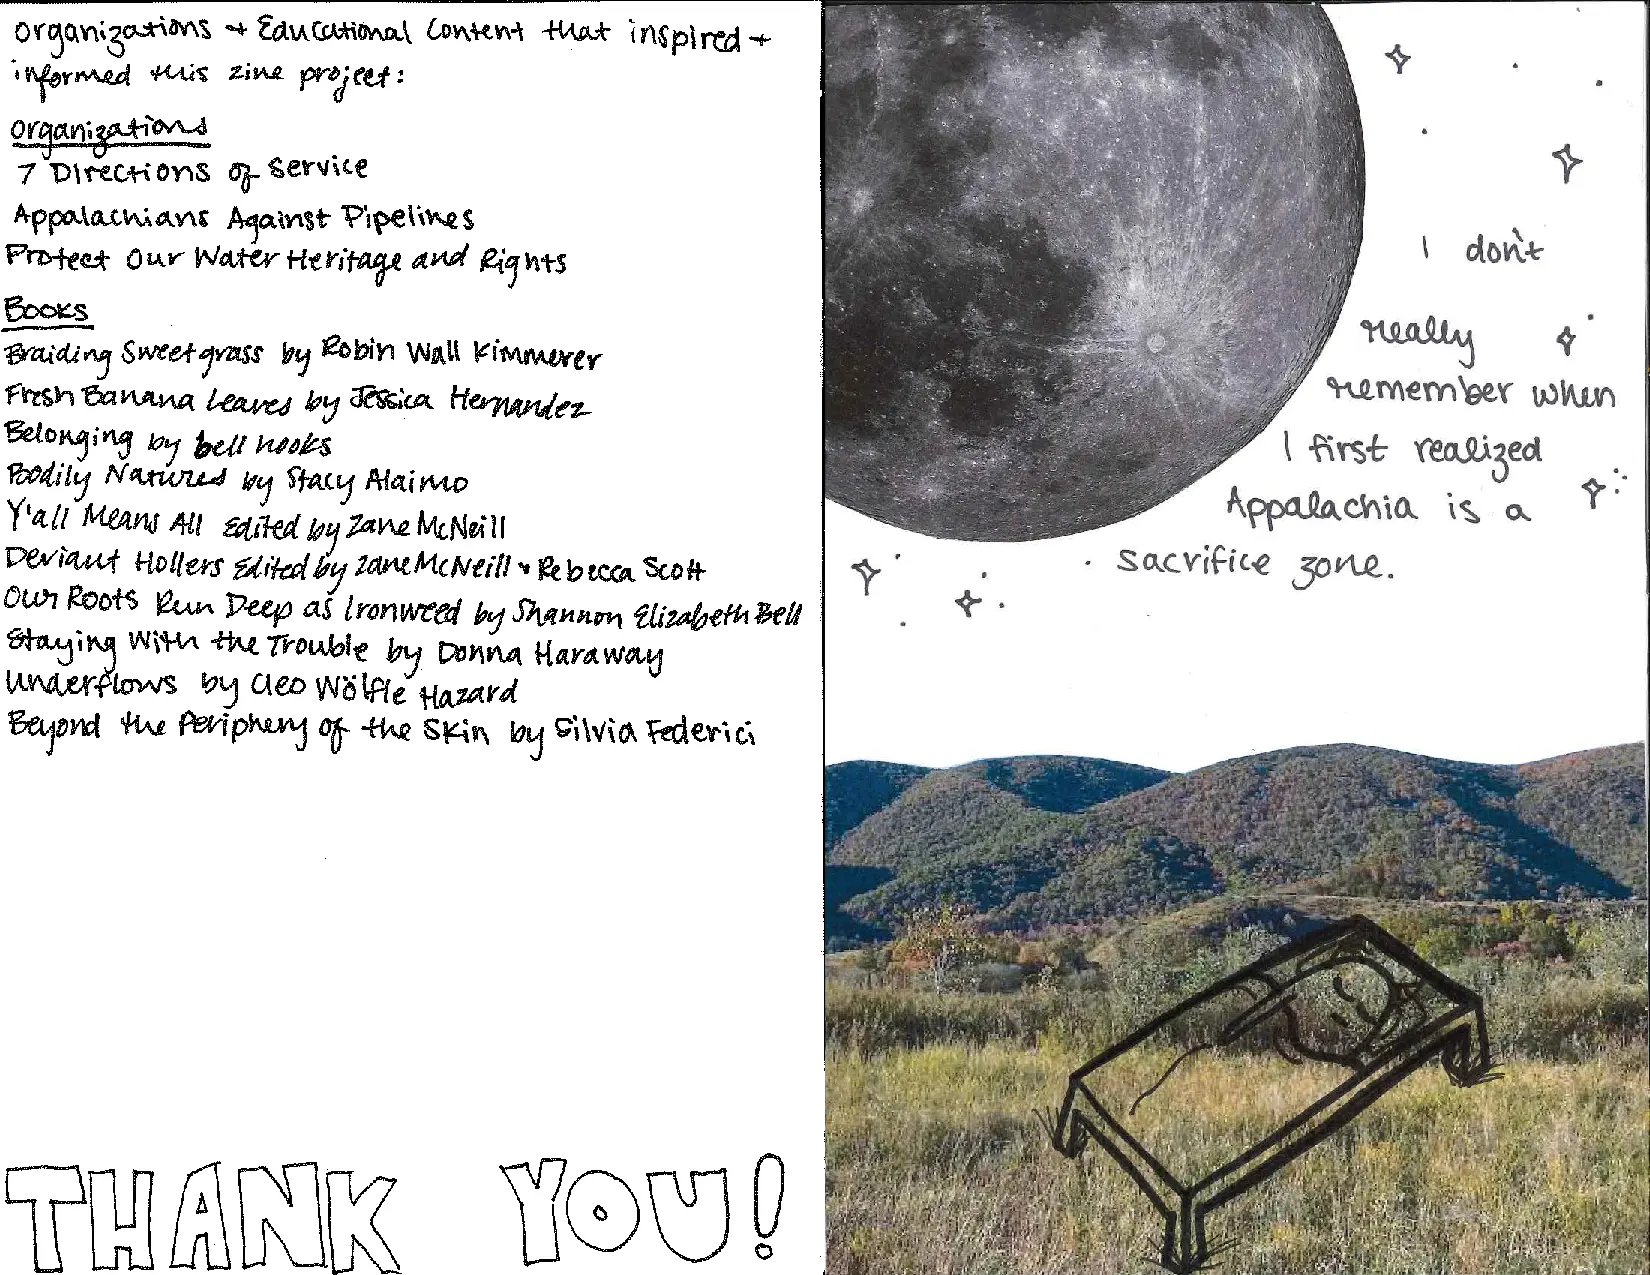 Organizations + Educational Content that inspired +
informed this zine project:
Organizations
7 Directions of Service
Appalachians Against Pipelines
Protect Our Water Heritage and Rights
Books
Braiding Sweetgrass by Robin Wall Kimmerer
Fresh Banana Leaves by Jessica Hernandez
Belonging by bell hooks
Bodily Natures by Stacy Alaimo
Y'all Means All Edited by Zane McNeill
Deviant Hollers Edited by Zane McNeill + Rebecca Scott
Our Roots Run Deep as Ironweed by Shannon Elizabeth Bell
Staying With the Trouble by Donna Haraway
Underflows by Cleo Wölfle Hazard
Beyond the Periphery of the Skin by Silvia Federici
THANK YOU!
I don't
really
remember when
I first realized
Appalachia is a
sacrifice zone.